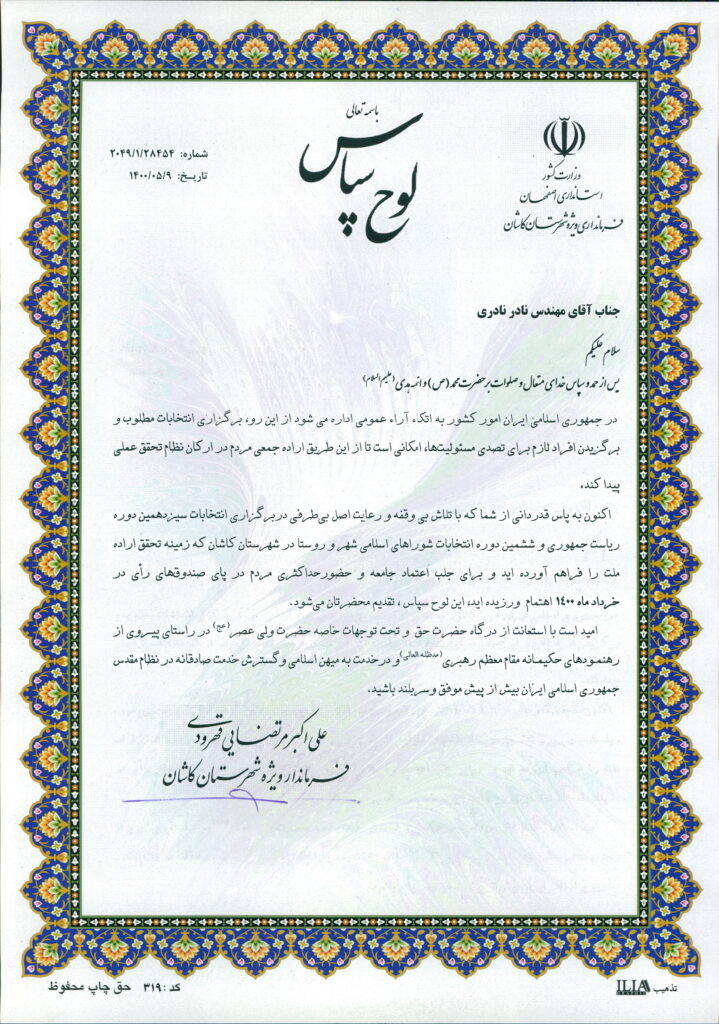 باسمه تعالی
لوح سپاس
وزارت کشور
استانداری اصفهان
فرمانداری ویژه شهرستان کاشان
شماره: ۲۰۴۹/۱/۲۸۴۵۴
تاریخ: ۱۴۰۰/۰۵/۹
جناب آقای مهندس نادر نادری
سلام علیکم
پس از حمد و سپاس خدای متعال و صلوات بر حضرت محمد (ص) و ائمه هدی (علیهم السلام)
در جمهوری اسلامی ایران امور کشور به اتکاء آراء عمومی اداره می شود از این رو، برگزاری انتخابات مطلوب و
برگزیدن افراد لازم برای تصدی مسئولیت‌ها، امکانی است تا از این طریق اراده جمعی مردم در ارکان نظام تحقق عملی
پیدا کند.
اکنون به پاس قدردانی از شما که با تلاش بی وقفه و رعایت اصل بی‌طرفی در برگزاری انتخابات سیزدهمین دوره
ریاست جمهوری و ششمین دوره انتخابات شوراهای اسلامی شهر و روستا در شهرستان کاشان که زمینه تحقق اراده
ملت را فراهم آورده اید و برای جلب اعتماد جامعه و حضور حداکثری مردم در پای صندوق‌های رأی در
خرداد ماه ۱۴۰۰ اهتمام ورزیده اید، این لوح سپاس، تقدیم محضرتان می‌شود.
امید است با استعانت از درگاه حضرت حق و تحت توجهات خاصه حضرت ولی عصر (عج) در راستای پیروی از
رهنمودهای حکیمانه مقام معظم رهبری (مدظله العالی) و در خدمت به میهن اسلامی و گسترش خدمت صادقانه در نظام مقدس
جمهوری اسلامی ایران بیش از پیش موفق و سربلند باشید.
علی اکبر مرتضایی قهرودی
فرماندار ویژه شهرستان کاشان
تذهیب ILIA
کد: ۳۱۹ حق چاپ محفوظ